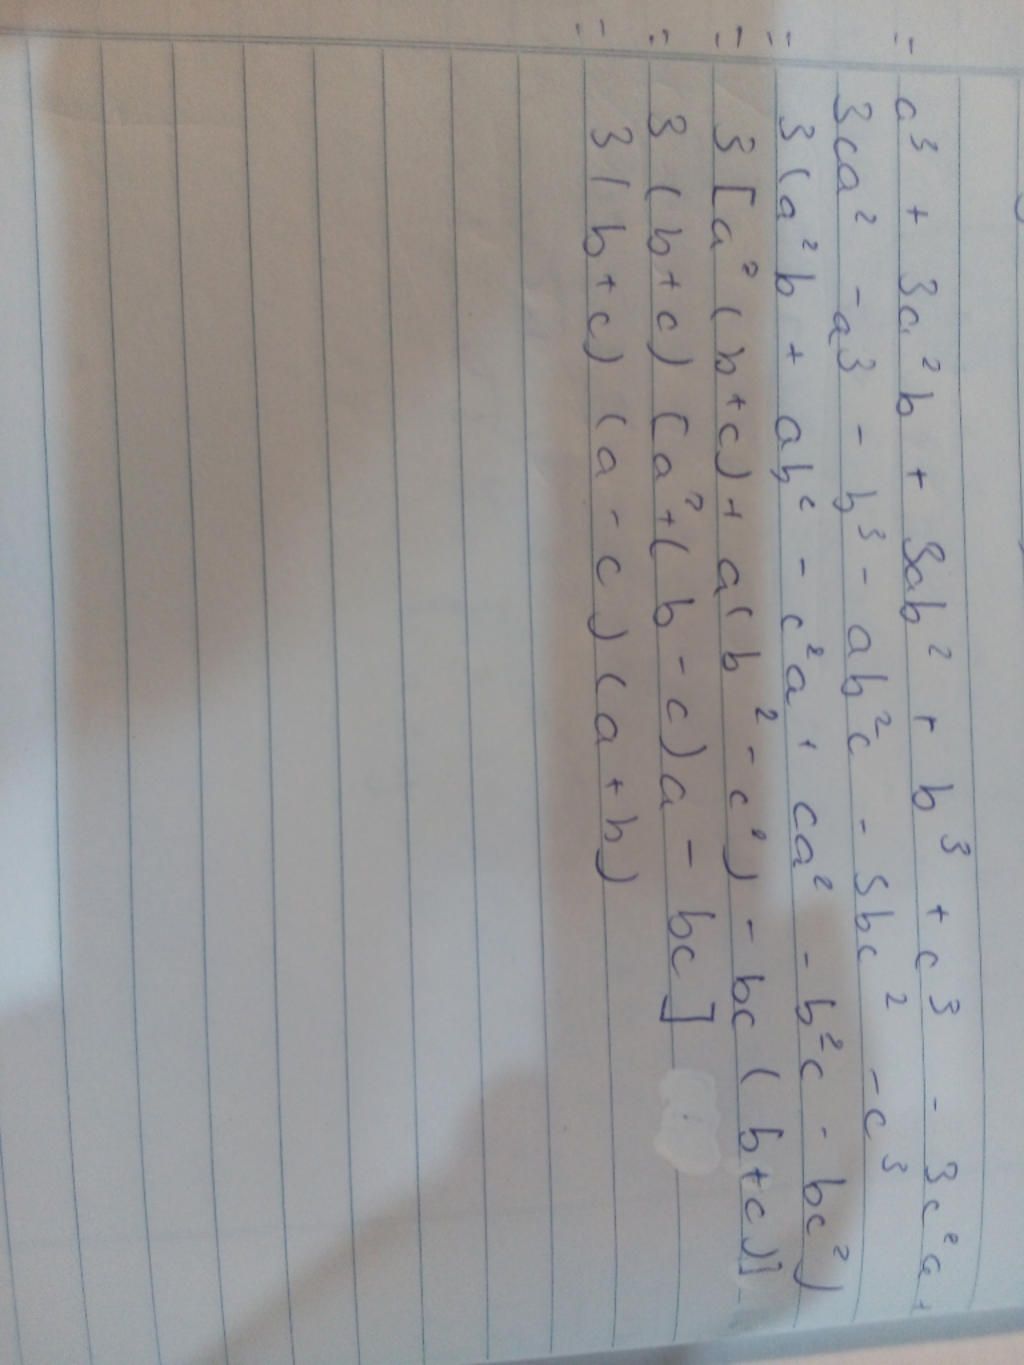 = a³ + 3a²b + 3ab² + b³ + c³ - 3c²a +
3ca² - a³ - b³ - ab²c - 3bc² - c³
= 3(a²b + ab² - c²a + ca² - b²c - bc²)
= 3[a²(b+c) + a(b² - c²) - bc(b+c)]
= 3(b+c)[a²+(b-c)a - bc]
= 3(b+c)(a-c)(a+b)